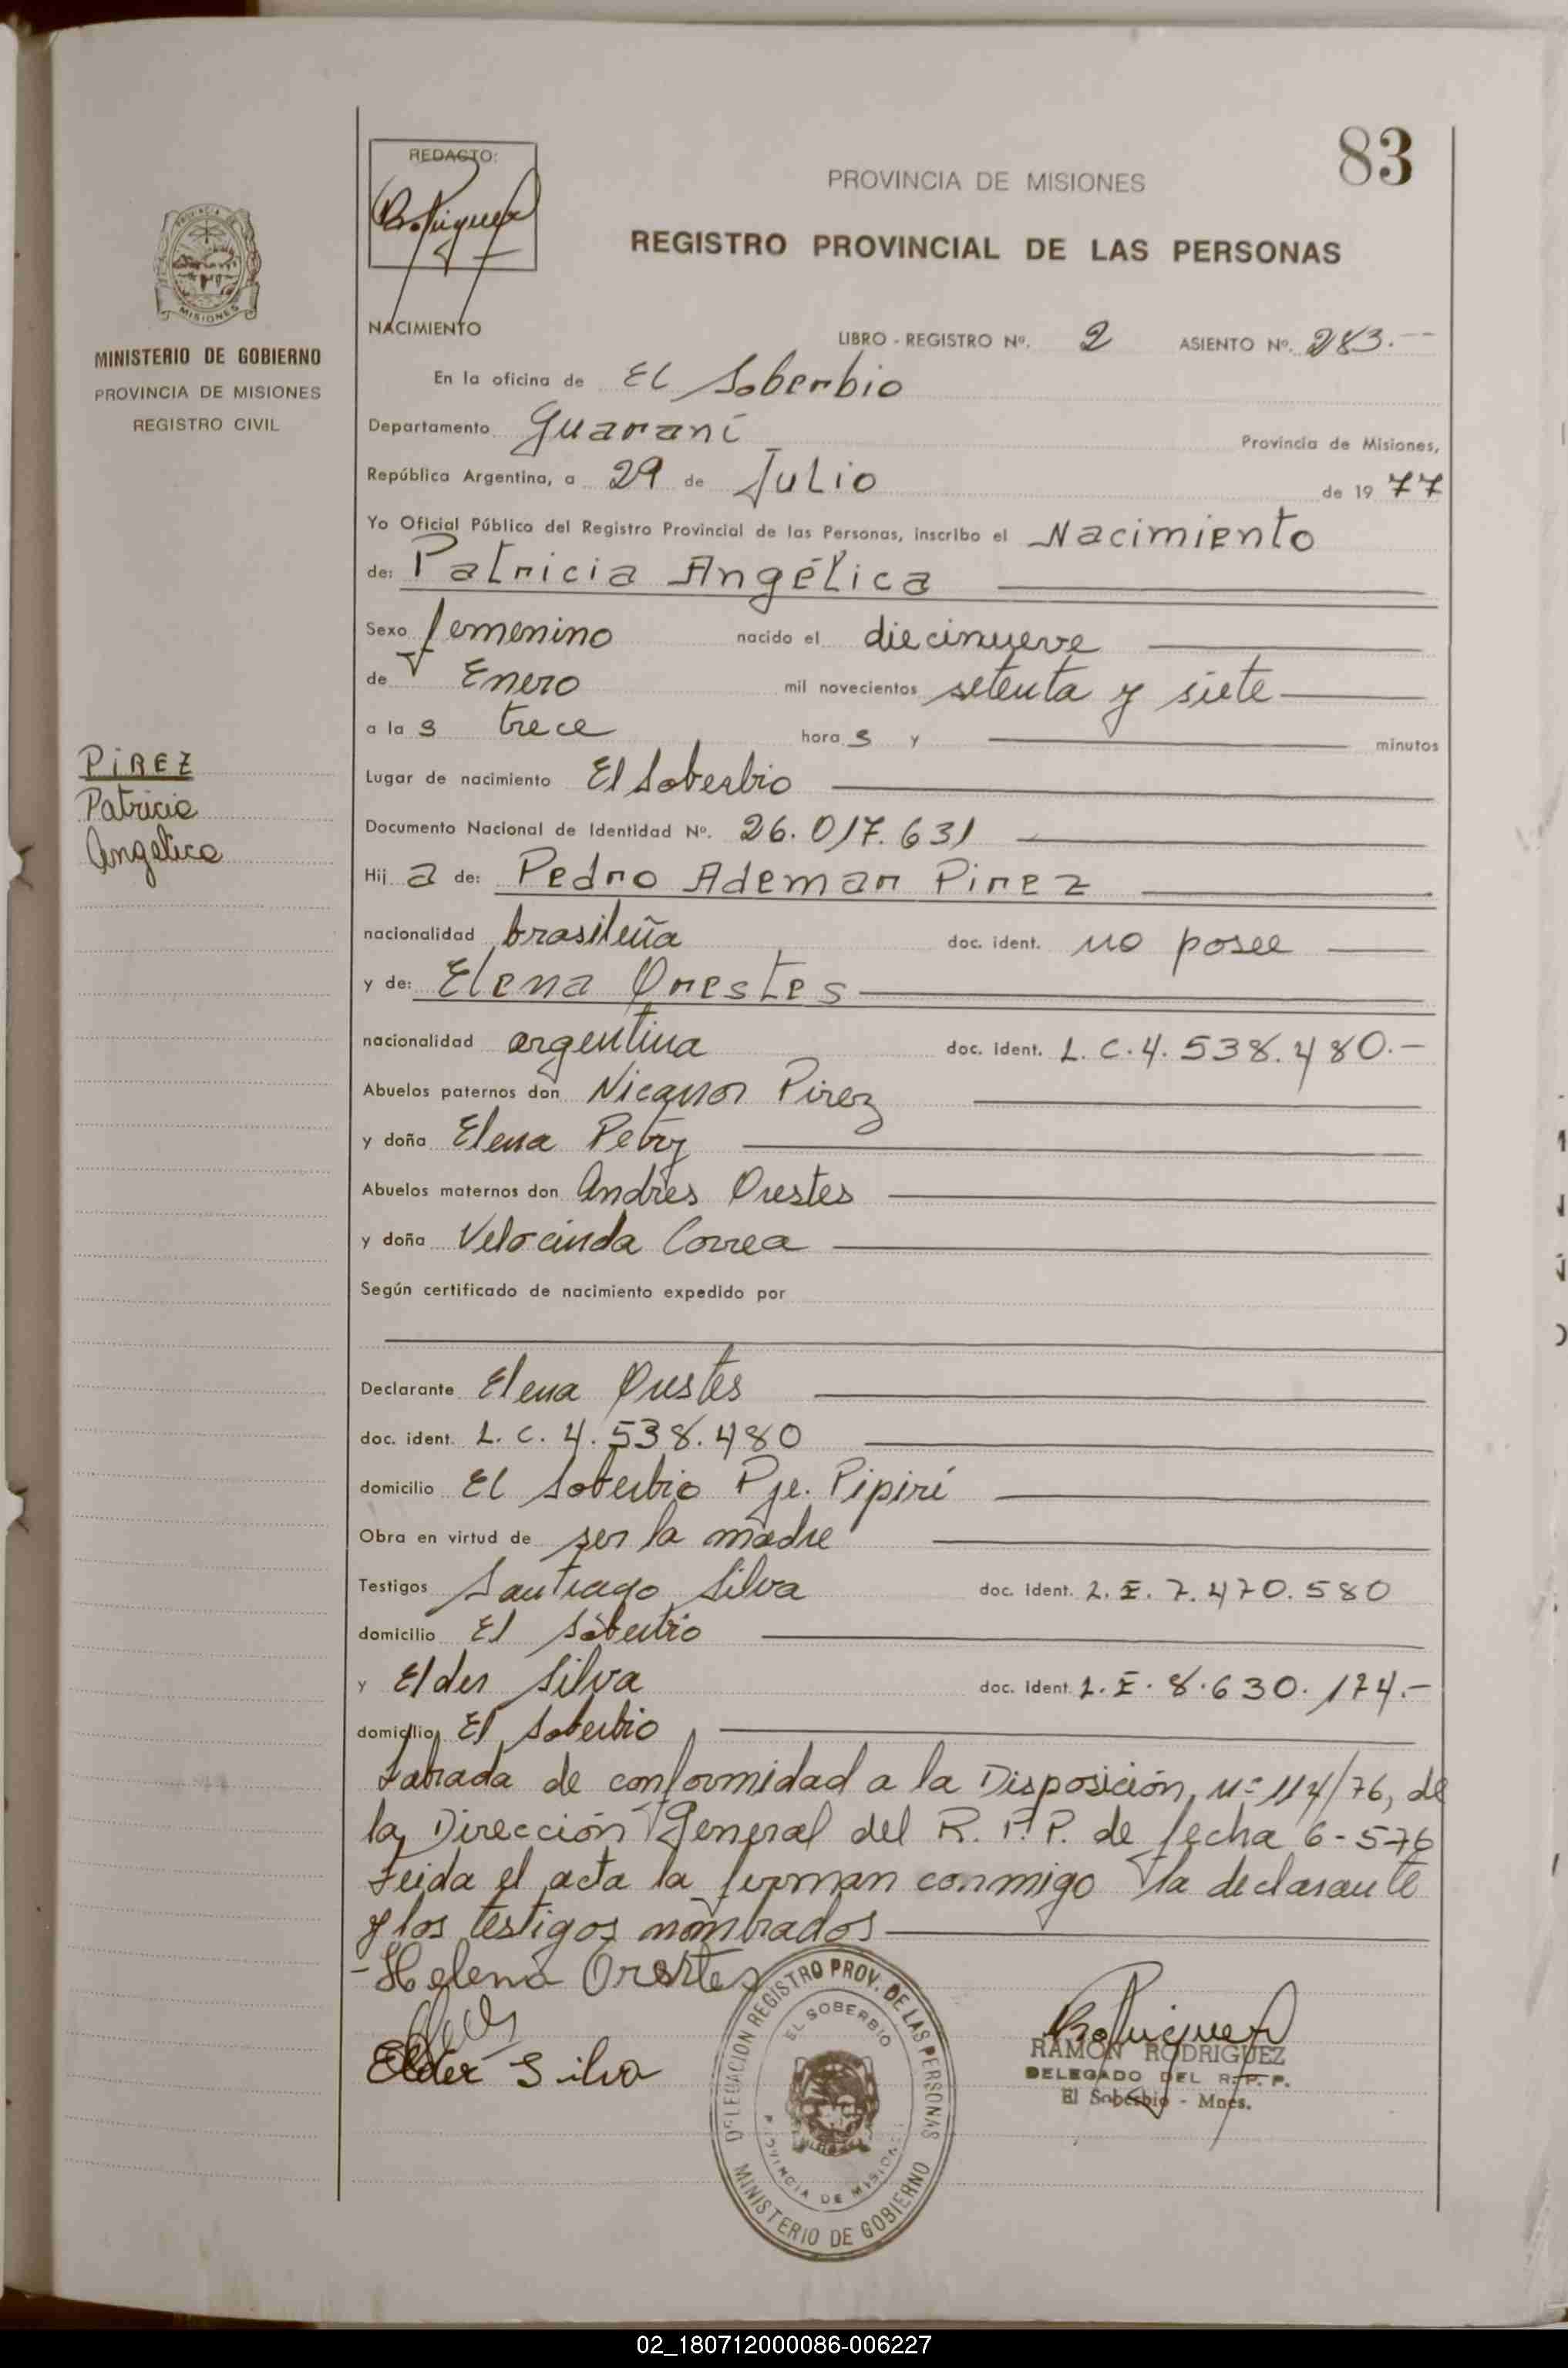 83
REDACTO:
PROVINCIA DE MISIONES
REGISTRO PROVINCIAL DE LAS PERSONAS
MISIONES
MINISTERIO DE GOBIERNO
PROVINCIA DE MISIONES
REGISTRO CIVIL
NACIMIENTO
LIBRO - REGISTRO Nº. 2 ASIENTO Nº. 283.--
En la oficina de El Soberbio
Departamento Guaraní Provincia de Misiones,
República Argentina, a 29 de Julio de 1977
Yo Oficial Público del Registro Provincial de las Personas, inscribo el Nacimiento
de: Patricia Angélica
Sexo femenino nacido el diecinueve
de Enero mil novecientos setenta y siete
a las trece horas y minutos
PIREZ
Patricia
Angelica
Lugar de nacimiento El Soberbio
Documento Nacional de Identidad Nº. 26.017.631
Hija de: Pedro Ademar Pirez
nacionalidad brasileña doc. ident. no posee
y de: Elena Orestes
nacionalidad argentina doc. ident. L.C.4.538.480.-
Abuelos paternos don Nicanor Pirez
y doña Elena Petry
Abuelos maternos don Andres Orestes
y doña Velocinda Correa
Según certificado de nacimiento expedido por
Declarante Elena Orestes
doc. ident. L.C. 4.538.480
domicilio El Soberbio Pje. Pipirí
Obra en virtud de ser la madre
Testigos Santiago Silva doc. ident. L.E. 7.470.580
domicilio El Soberbio
y Elder Silva doc. ident. L.E. 8.630.174.-
domicilio El Soberbio
Labrada de conformidad a la Disposición nº 114/76, de
la Dirección General del R.P.P. de fecha 6-5-76
Leida el acta la firman conmigo la declarante
y los testigos nombrados
- Helena Orestes
Elder Silva
DELEGACION REGISTRO PROV. DE LAS PERSONAS
EL SOBERBIO
PROVINCIA DE MISIONES
MINISTERIO DE GOBIERNO
RAMON RODRIGUEZ
DELEGADO DEL R.P.P.
El Soberbio - Mnes.
02_180712000086-006227